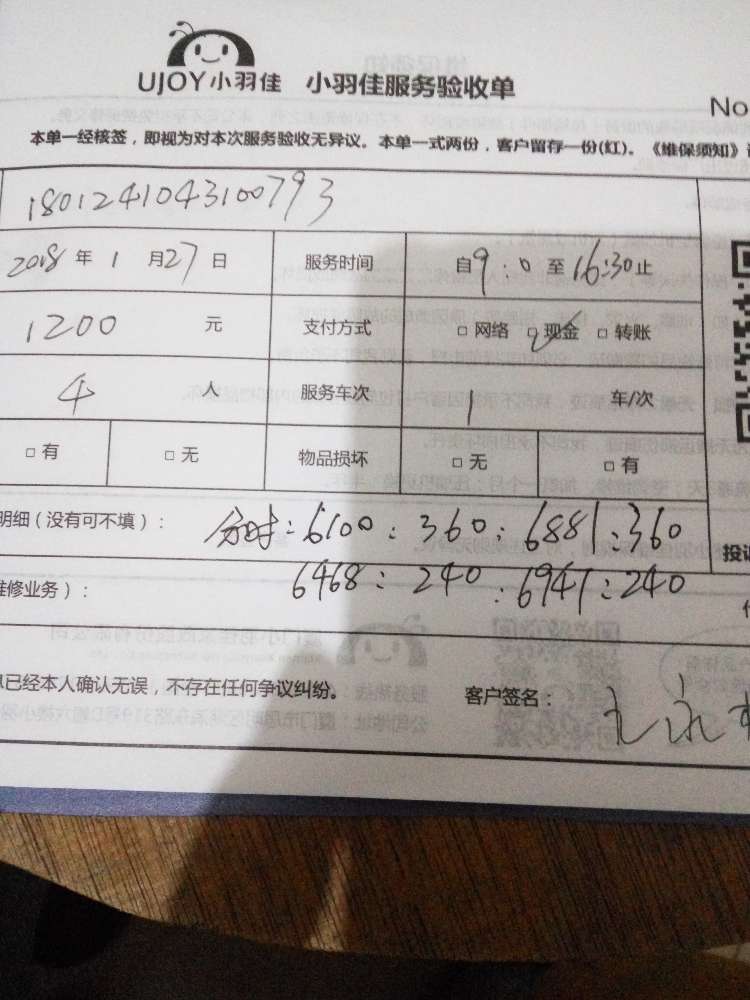 UJOY小羽佳 小羽佳服务验收单
No
本单一经核签，即视为对本次服务验收无异议。本单一式两份，客户留存一份(红)。《维保须知》
1801241043100793
2018年1月27日 服务时间 自9:0至16:30止
1200元 支付方式 □网络 □现金 □转账
4人 服务车次 1车/次
□有 □无 物品损坏 □无 □有
明细（没有可不填）： 分时:6100:360:6881:360
投诉
维修业务）： 6468:240:6941:240
已经本人确认无误，不存在任何争议纠纷。 客户签名：